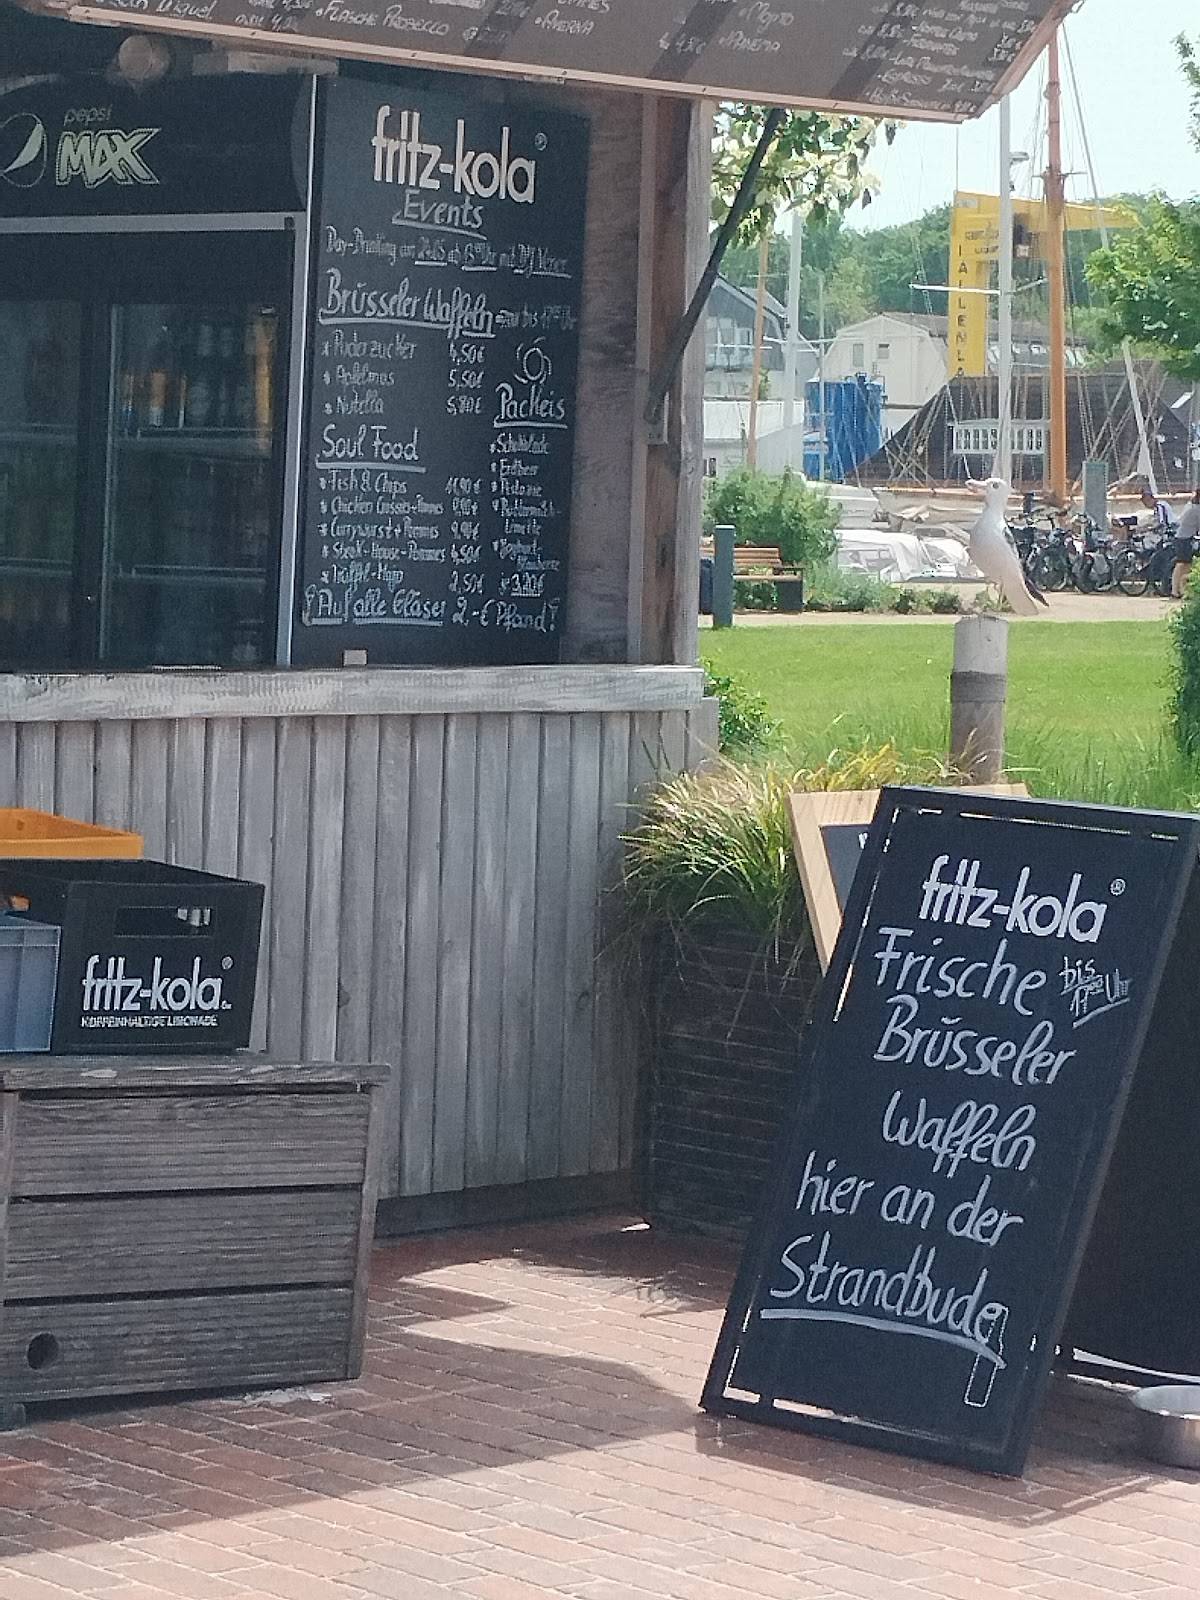 San Miguel
FLASCHE PROSECCO
AVERNA
MOJITO
pepsi
MAX
fritz-kola®
Events
Day-Drinking am 24.05 ab 13⁰⁰ Uhr mit DJ
Brüsseler Waffeln bis 17⁰⁰ Uhr
* Puderzucker 4,50€
* Apfelmus 5,50€
* Nutella 5,80€
Packeis
* Schokolade
* Erdbeer
* Pistazie
* Buttermilch-
Limette
* Joghurt-
Blaubeere
je 3,20€
Soul Food
* Fish & Chips 11,90€
* Chicken Crossies + Pommes 9,90€
* Currywurst + Pommes 9,90€
* Steak-House-Pommes 4,50€
* Trüffel-Mayo 2,50€
! Auf alle Gläser 2,-€ Pfand !
fritz-kola®
KOFFEINHALTIGE LIMONADE
fritz-kola®
Frische bis
17⁰⁰ Uhr
Brüsseler
Waffeln
hier an der
Strandbude